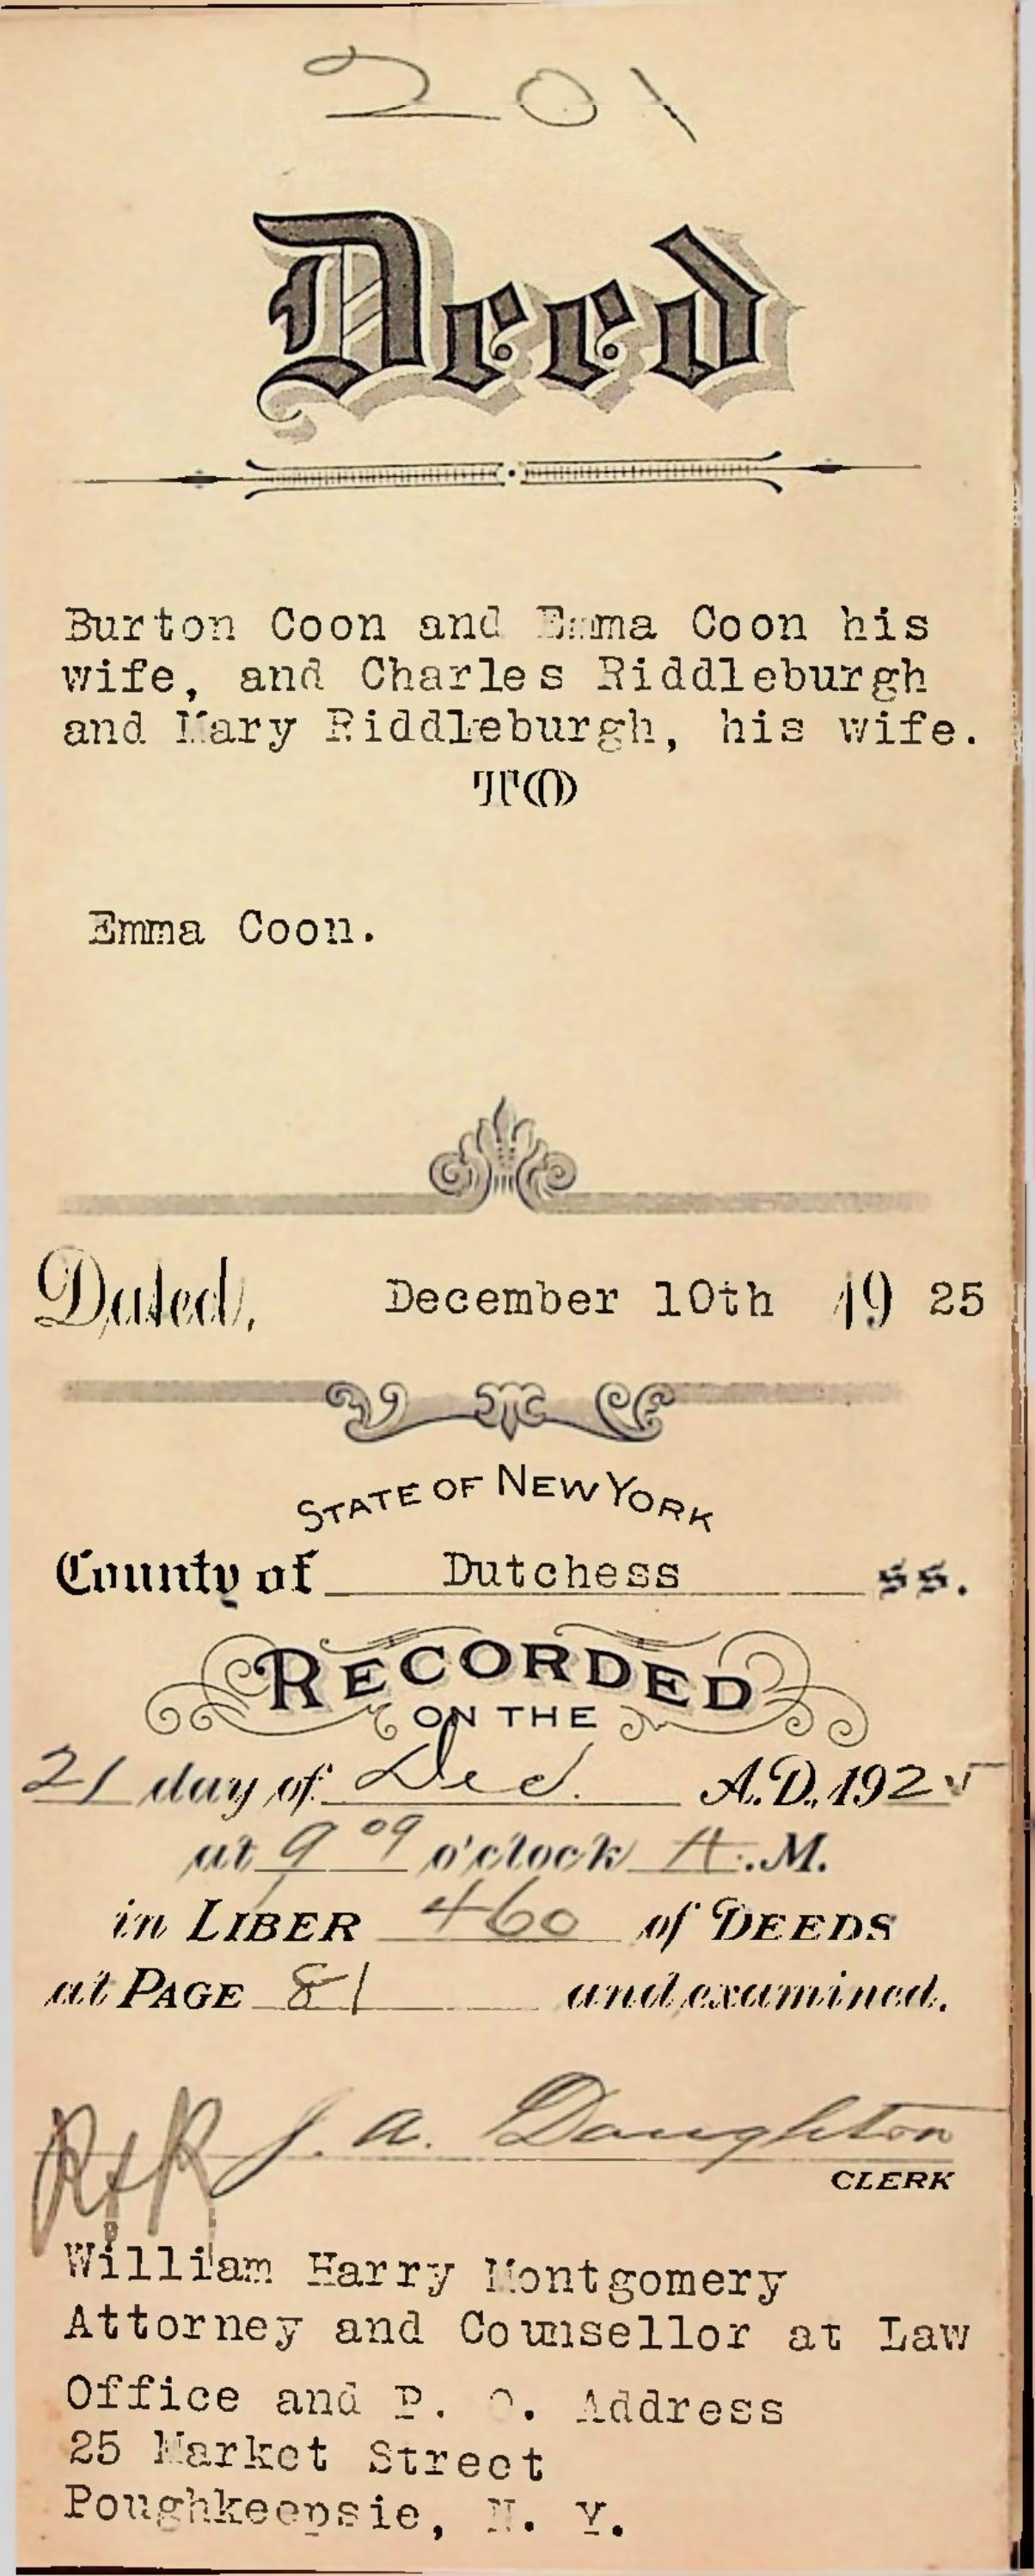 201
Deed
Burton Coon and Emma Coon his
wife, and Charles Riddleburgh
and Mary Riddleburgh, his wife.
TO
Emma Coon.
Dated, December 10th 19 25
STATE OF NEW YORK
County of Dutchess ss.
RECORDED
ON THE
21 day of Dec. A.D. 1925
at 9 09 o'clock A.M.
in LIBER 460 of DEEDS
at PAGE 81 and examined.
J. A. Doughton
CLERK
William Harry Montgomery
Attorney and Counsellor at Law
Office and P. O. Address
25 Market Street
Poughkeepsie, N. Y.